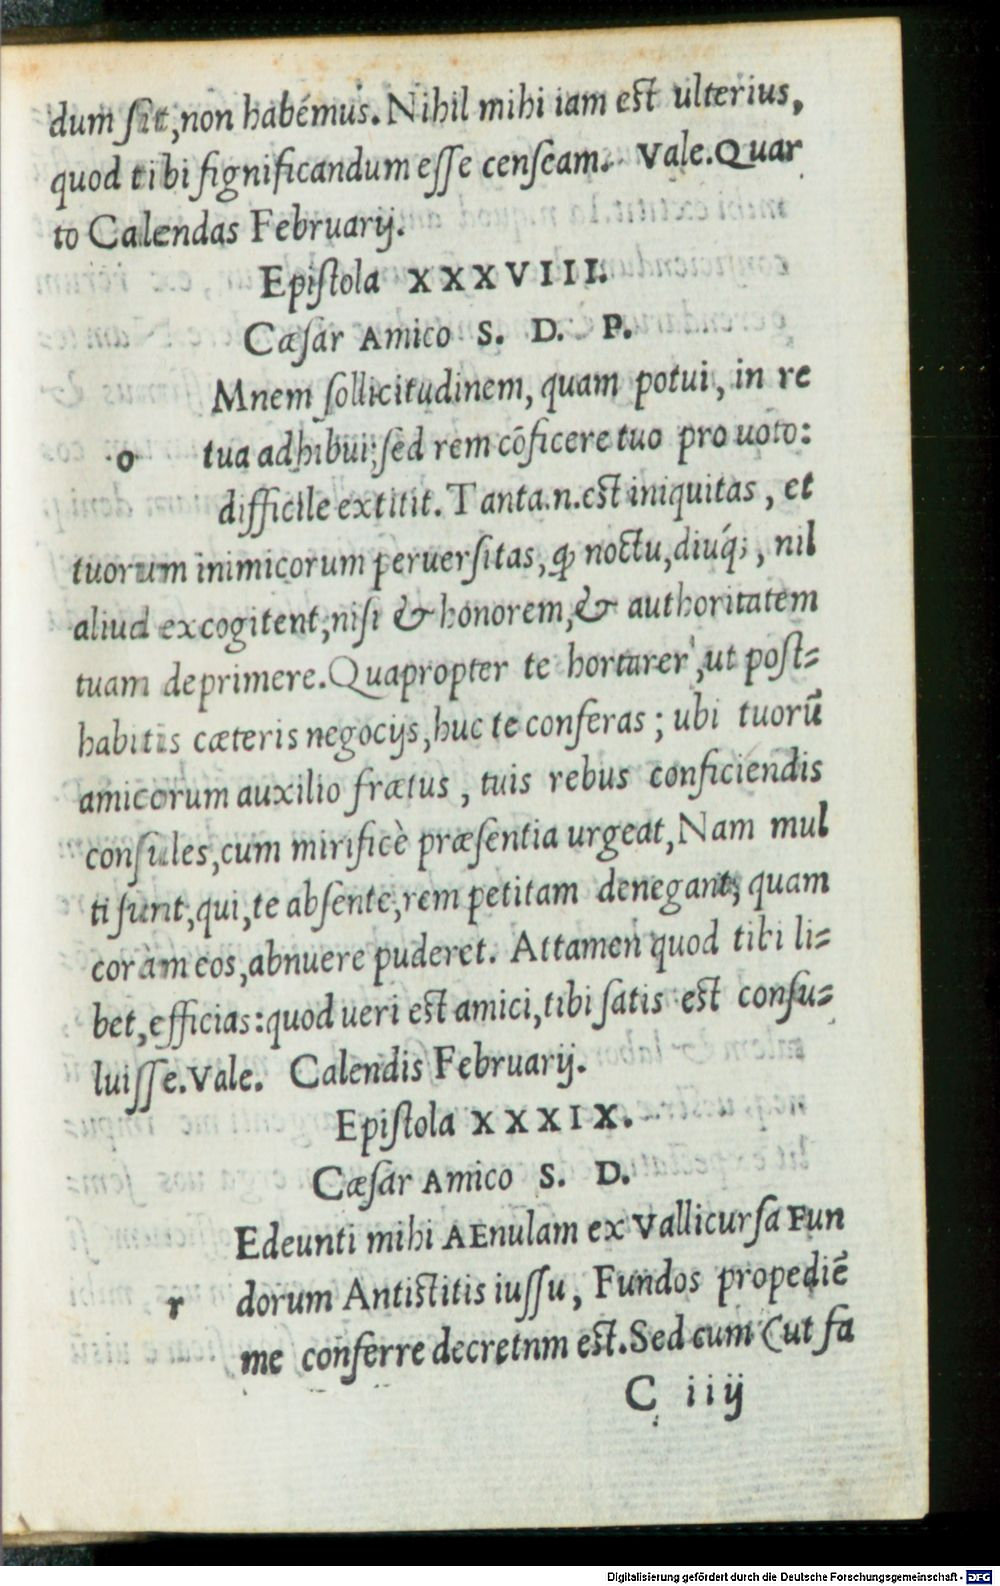 dum ſit, non habemus. Nihil mihi iam est ulterius,
quod tibi ſignificandum eſſe cenſeam. Vale. Quar
to Calendas Februarij.
Epiſtola XXXVIII.
Cæſar Amico S. D. P.
Mnem ſollicitudinem, quam potui, in re
o tua adhibui; ſed rem cōficere tuo pro uoto:
difficile extitit. Tanta.n.est iniquitas, et
tuorum inimicorum peruerſitas, ꝙ noctu, diuq́;, nil
aliud excogitent, niſi & honorem, & authoritatem
tuam deprimere. Quapropter te hortarer, ut poſt=
habitis cæteris negocijs, huc te conferas; ubi tuorū
amicorum auxilio frætus, tuis rebus conficiendis
conſules, cum mirificè præſentia urgeat, Nam mul
ti ſunt, qui, te abſente, rem petitam denegant, quam
coràm eos, abnuere puderet. Attamen quod tibi li=
bet, efficias: quod ueri est amici, tibi ſatis est conſu=
luiſſe. Vale. Calendis Februarij.
Epiſtola XXXIX.
Cæſar Amico S. D.
Edeunti mihi AEnulam ex Vallicurſa Fun
r dorum Antistitis iuſſu, Fundos propediē
me conferre decretnm est. Sed cum (ut fa
C iiij
Digitalisierung gefördert durch die Deutsche Forschungsgemeinschaft - DFG